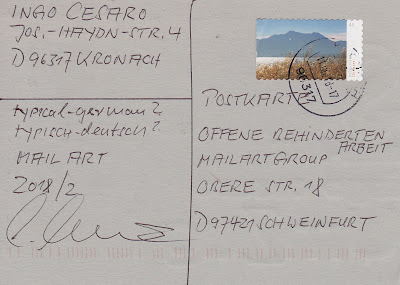 INGO CESARO
JOS.-HAYDN-STR. 4
D 96317 KRONACH
typical-german?
typisch-deutsch?
MAIL ART
2018/2
96317
POSTKARTE
OFFENE BEHINDERTEN
ARBEIT
MAILARTGROUP
OBERE STR. 18
D 97421 SCHWEINFURT